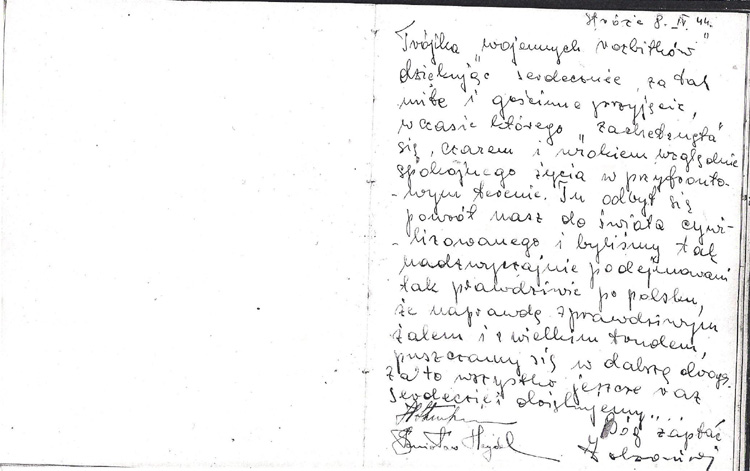 8. IV 44.
Trójka "wojennych rozbitków"
dziękując serdecznie za tak
miłe i gościnne przyjęcie,
w czasie którego "zachłysnęła"
się, czarem i urokiem względnie
spokojnego życia w przyfronto-
wym terenie. Tu odbył się
powrót nasz do świata cywi-
lizowanego i byliśmy tak
nadzwyczajnie podejmowani
tak prawdziwie po polsku,
że naprawdę z prawdziwym
żalem i z wielkim trudem,
puszczamy się w dalszą drogę.
Za to wszystko jeszcze raz
serdecznie dziękujemy...
Bóg zapłać
Stanisław